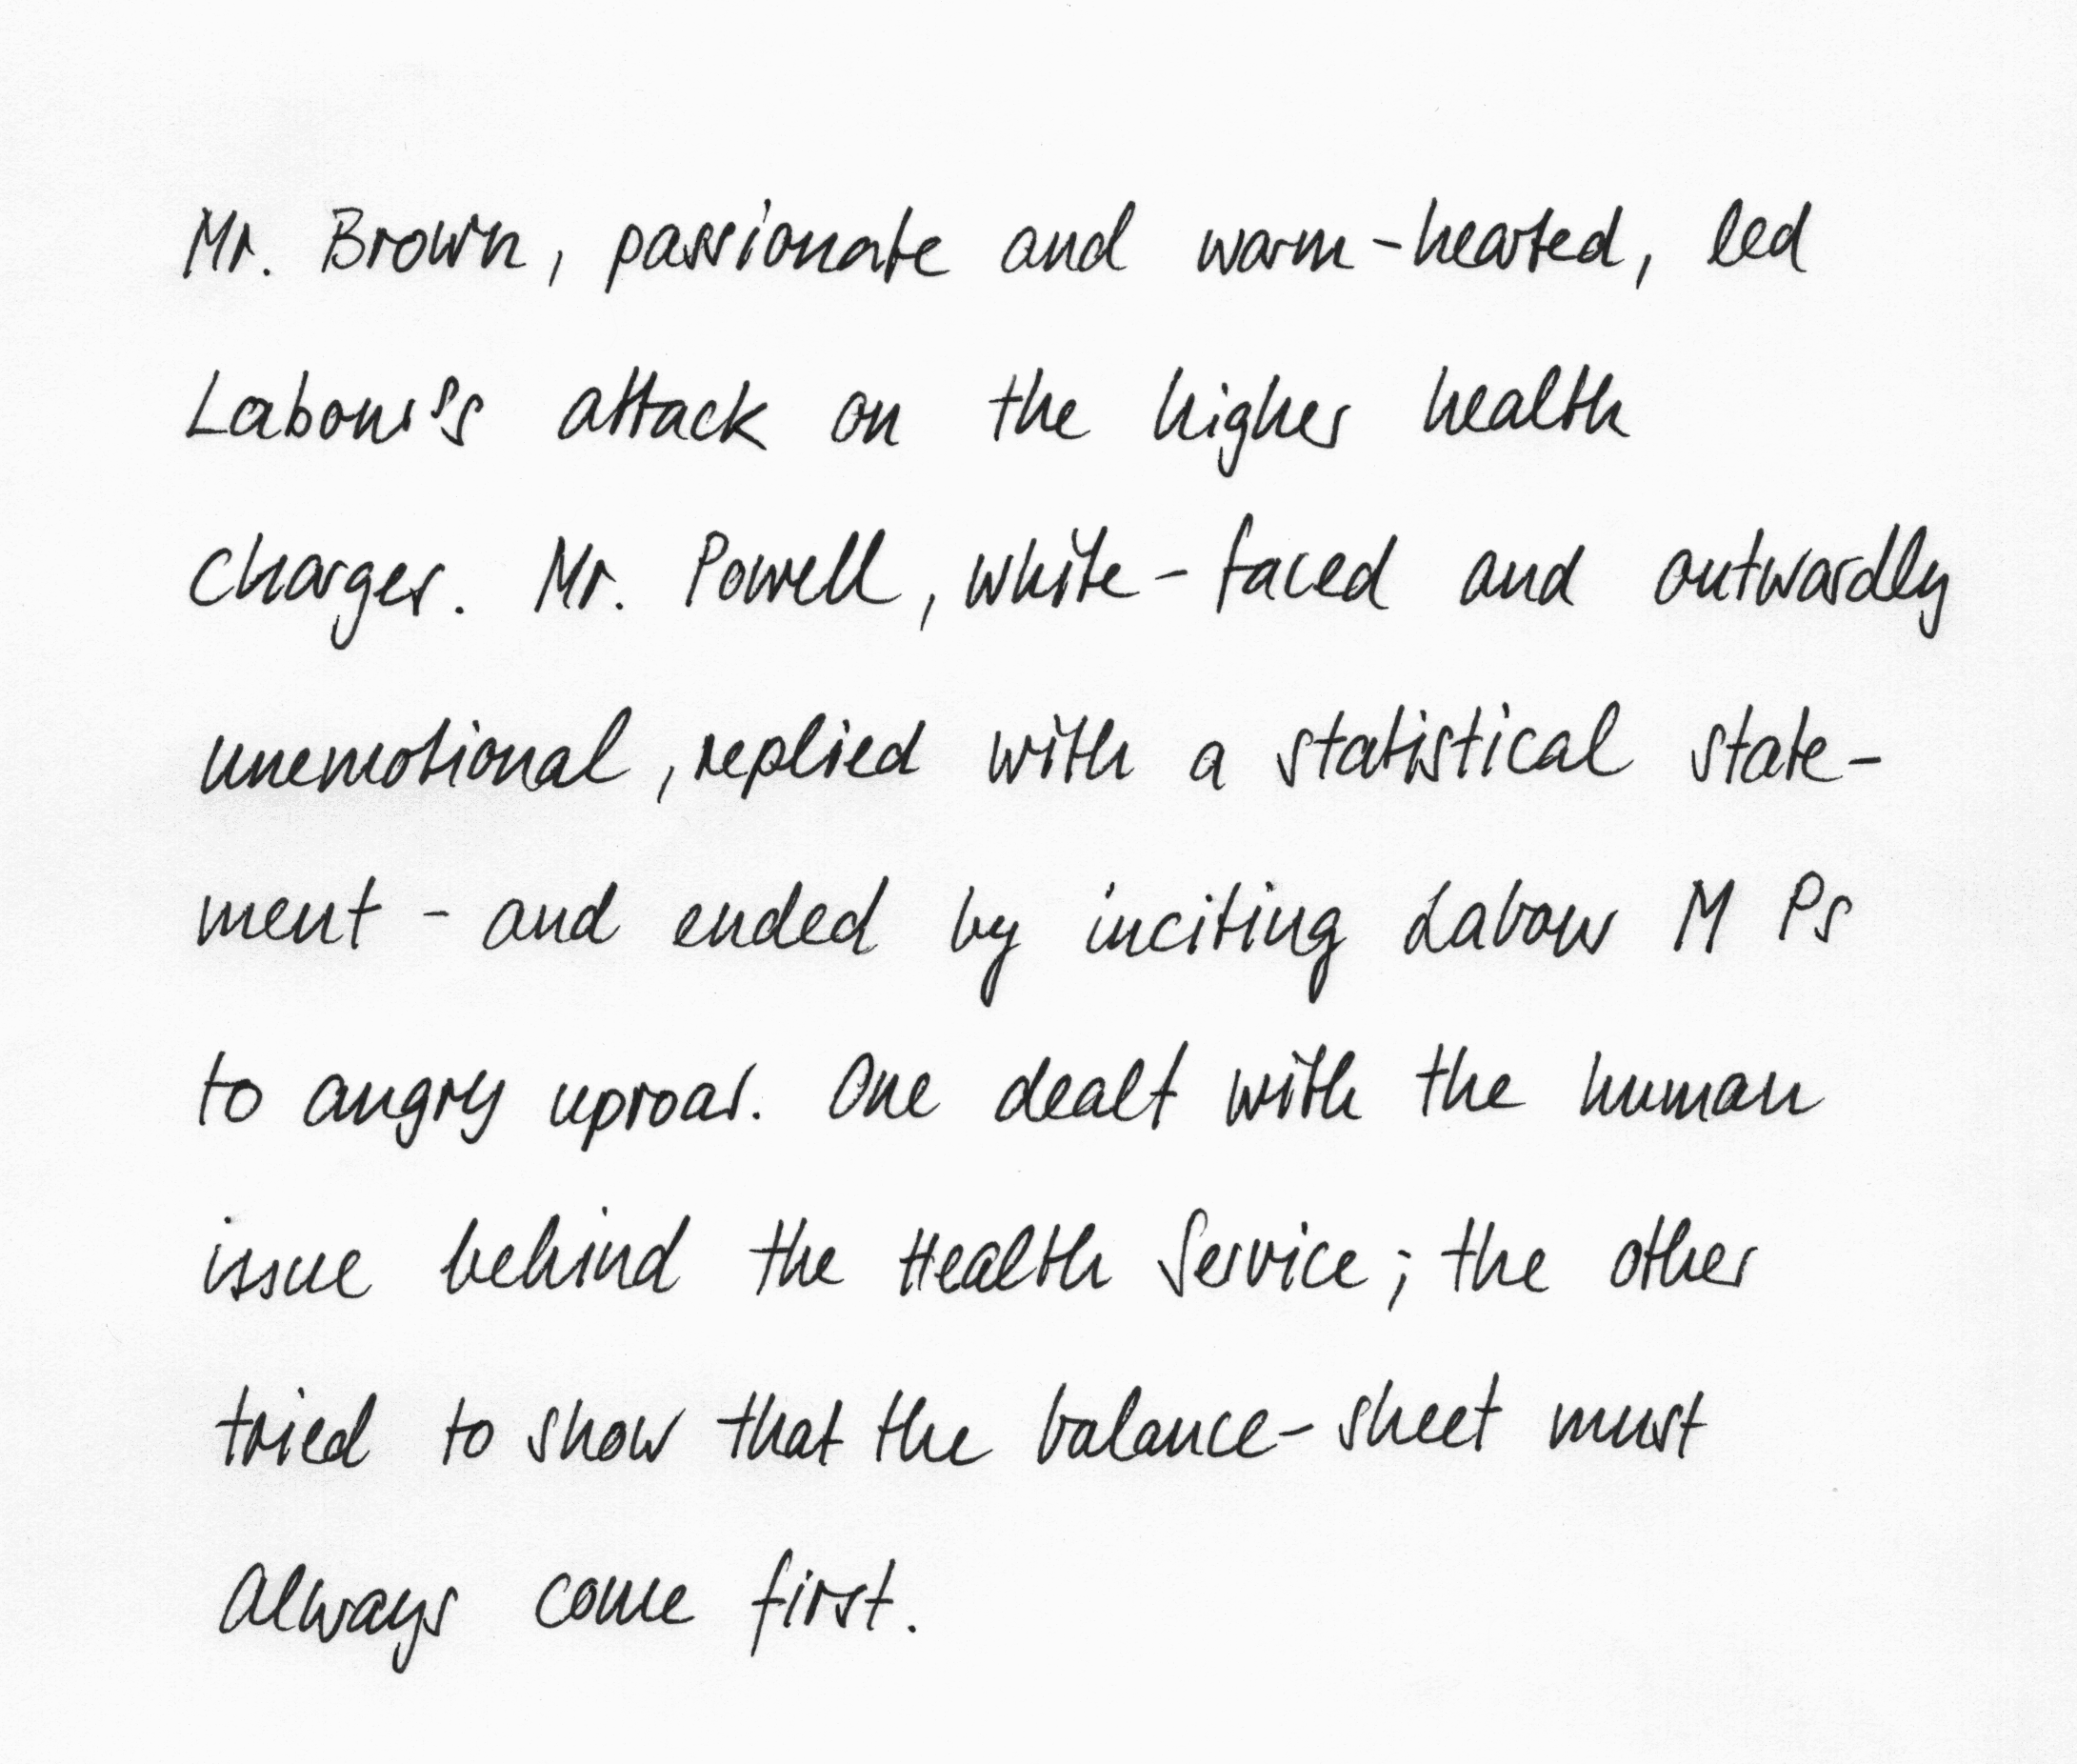 Mr. Brown, passionate and warm-hearted, led
Labour's attack on the higher health
charges. Mr. Powell, white-faced and outwardly
unemotional, replied with a statistical state-
ment - and ended by inciting Labour M Ps
to angry uproar. One dealt with the human
issue behind the Health Service; the other
tried to show that the balance-sheet must
always come first.